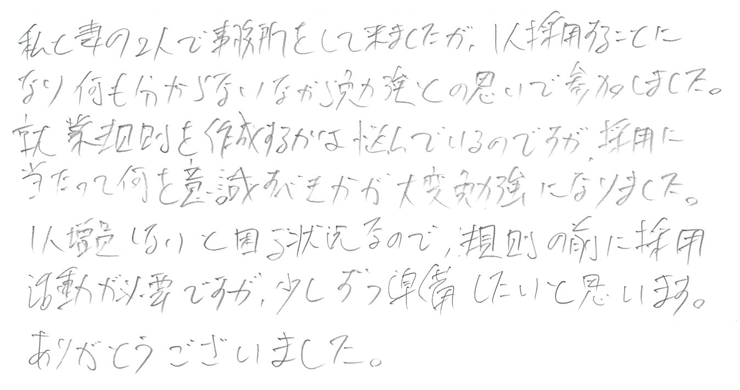 私と妻の2人で事務所をして来ましたが、1人採用することに
なり何も分からないながら勉強との思いで参加しました。
就業規則を作成するかは悩んでいるのですが、採用に
当たって何を意識すべきかが大変勉強になりました。
1人増員しないと困る状況なので、規則の前に採用
活動が必要ですが、少しずつ準備したいと思います。
ありがとうございました。